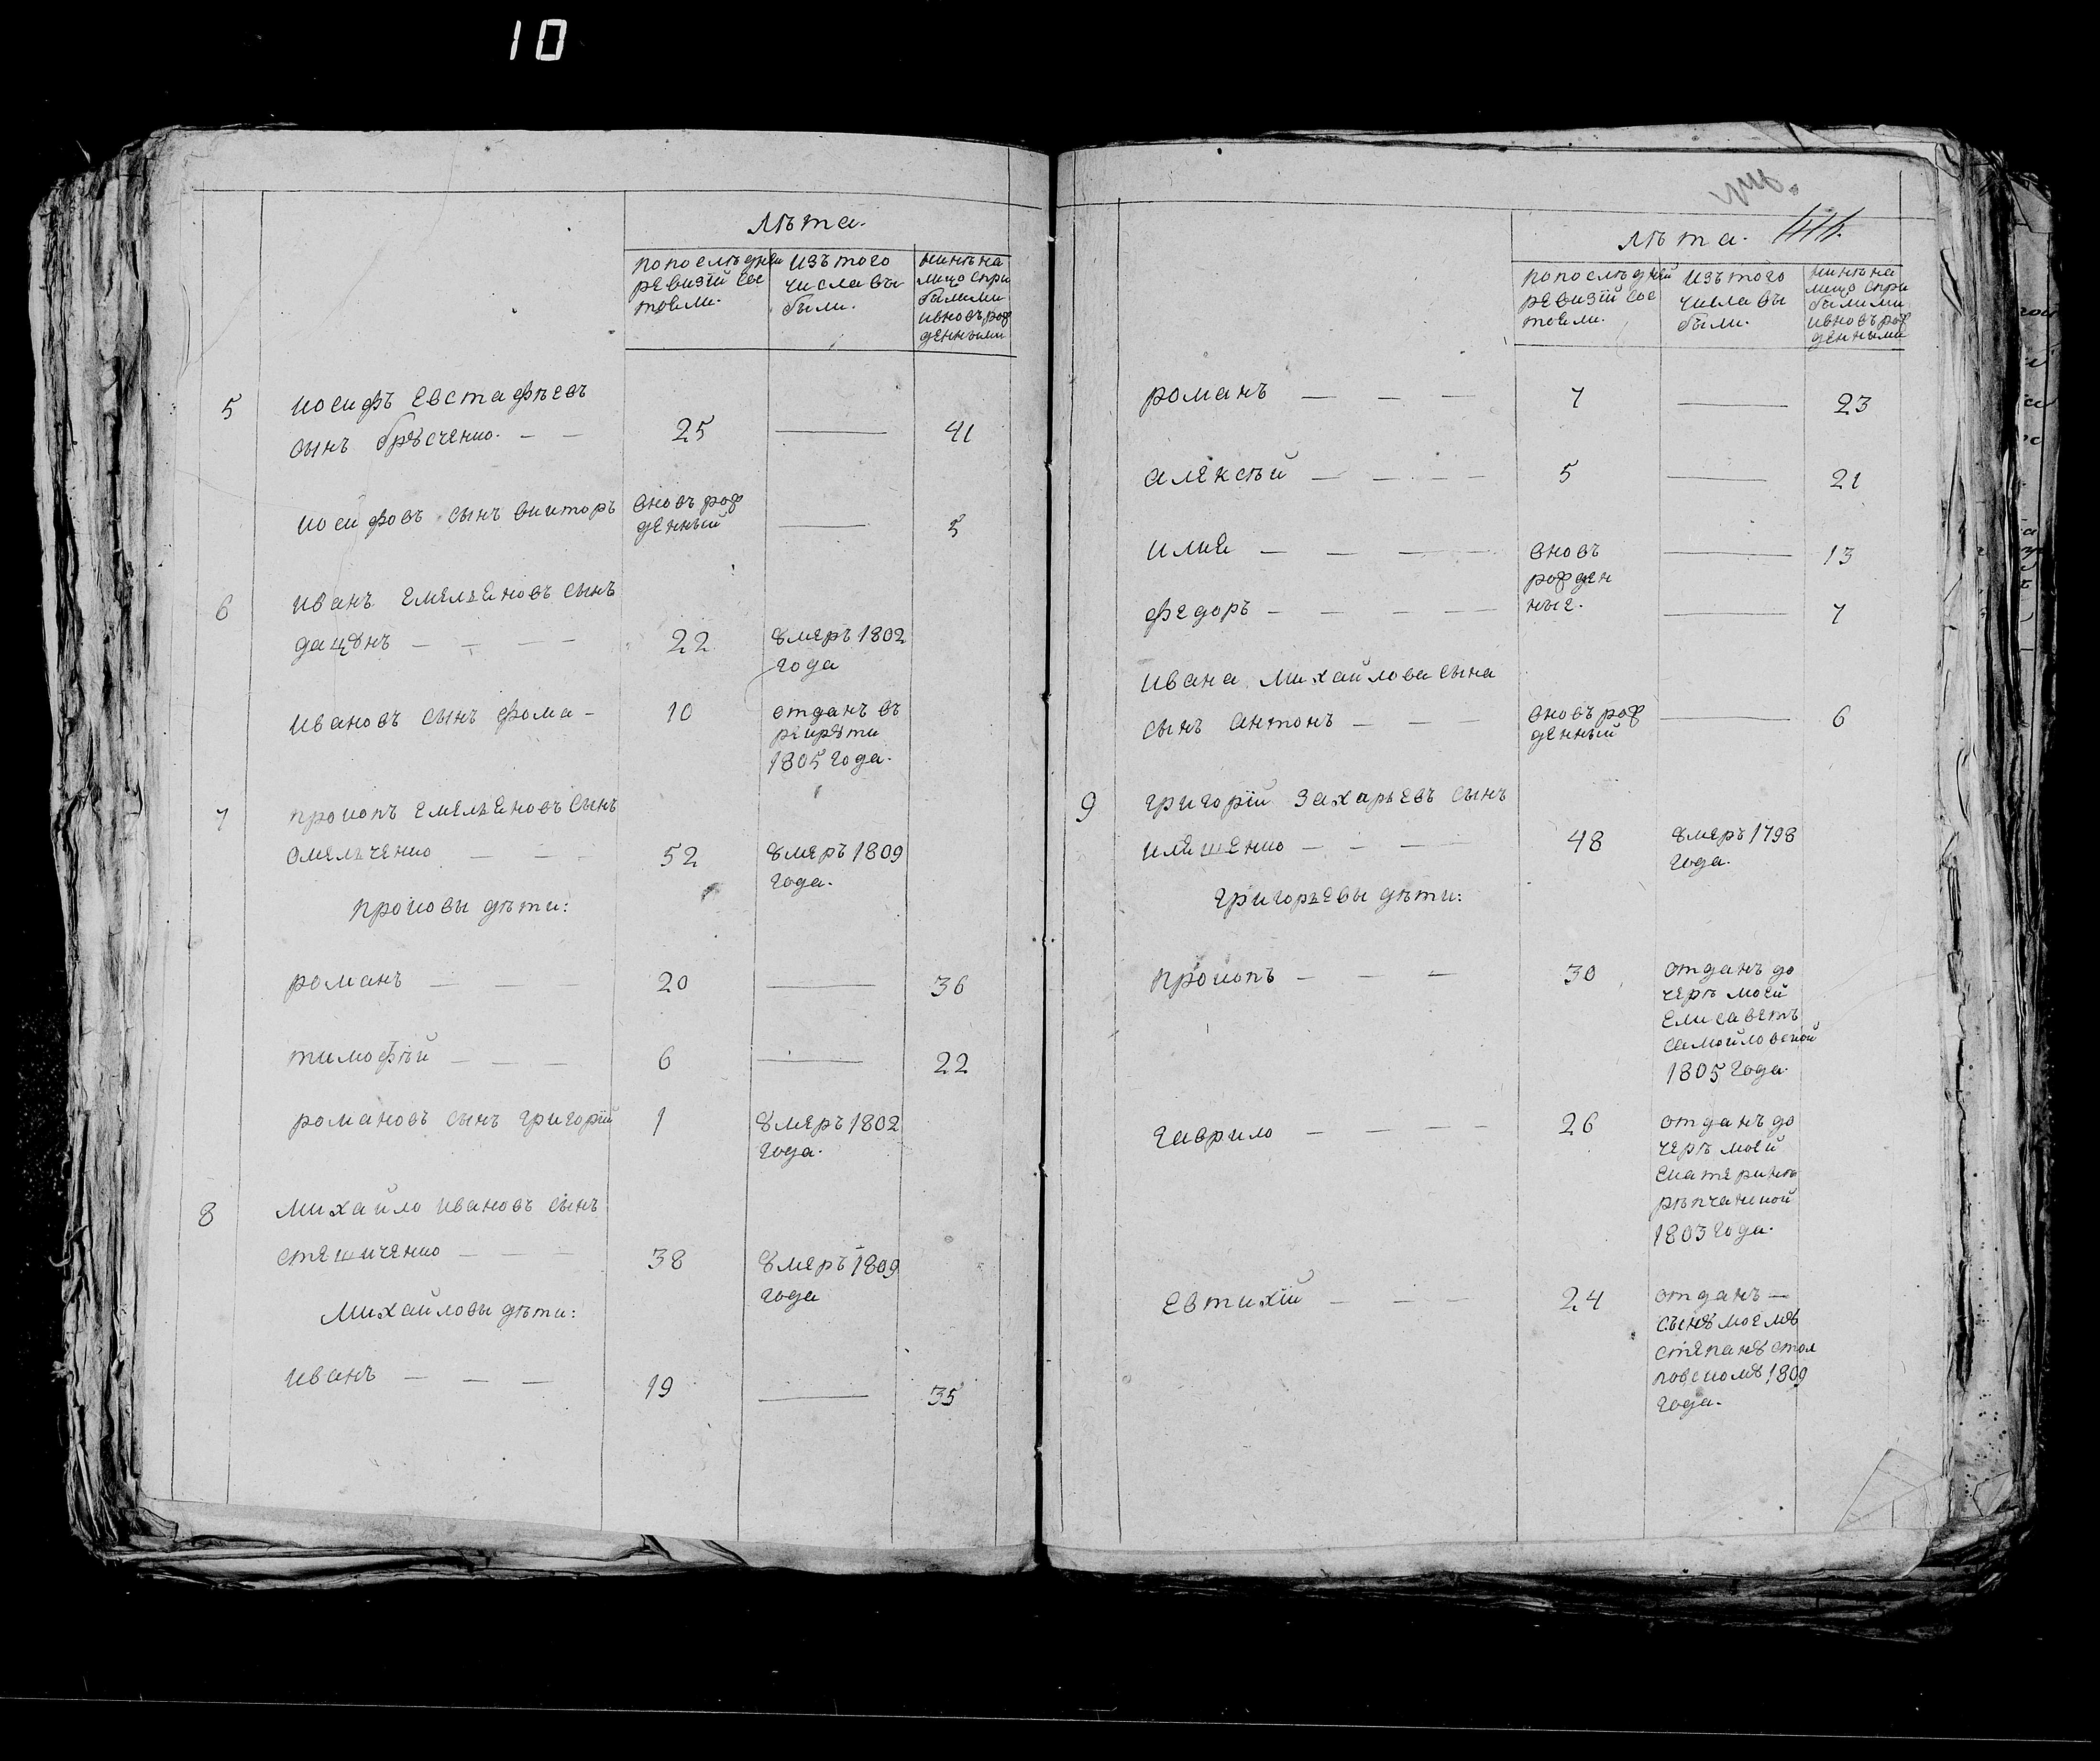 10
лѣта.
попослѣдней ревизiй сос тояли.
изъ того числа вы были.
нинѣ на лицо спри былими ивновърож денными
5 иосифъ евстафѣевъ
сынъ брꙋсченко. — — 25 — 41
иосифовъ сынъ викторъ вновъ рож денный — 5
6 иванъ емельяновъ сынъ
дацꙋнъ — — — — 22 ꙋмеръ 1802 года
ивановъ сынъ фома — 10 отданъ въ рекрꙋти 1805 года.
7 прокопъ емельяновъ сынъ
омельченко — — — 52 ꙋмеръ 1809 года.
проковы дѣти:
романъ — — — 20 — 36
тимофѣй — — — 6 — 22
романовъ сынъ григорiй 1 ꙋмеръ 1802 года.
8 михайло ивановъ сынъ
стешиченко — — — 38 ꙋмеръ 1809 года
михайловы дѣти:
иванъ — — — 19 — 35
лѣта. 411.
попослѣдней ревизiй сос тояли.
изъ того числа вы были.
нинѣ на лицо спри былими ивновърож денными
романъ — — — 7 — 23
алексѣй — — — — 5 — 21
илия — — — — вновъ — 13
рожден
федоръ — — — — ные. — 7
ивана михайлова сына
сынъ антонъ — — — вновъ рож денный — 6
9 григорiй захарьевъ сынъ
иляшенко — — — 48 ꙋмеръ 1798 года.
григорьевы дѣти:
прокопъ — — — 30 отданъ до
черѣ моей
елисаветъ
самойловской
1805 года.
гаврило — — — — 26 отданъ до
черѣ моей
екатеринѣ
рѣпчанской
1803 года.
евтихiй — — — 24 отданъ —
сынꙋ моемꙋ
степанꙋ стол
повскомꙋ 1809
года.